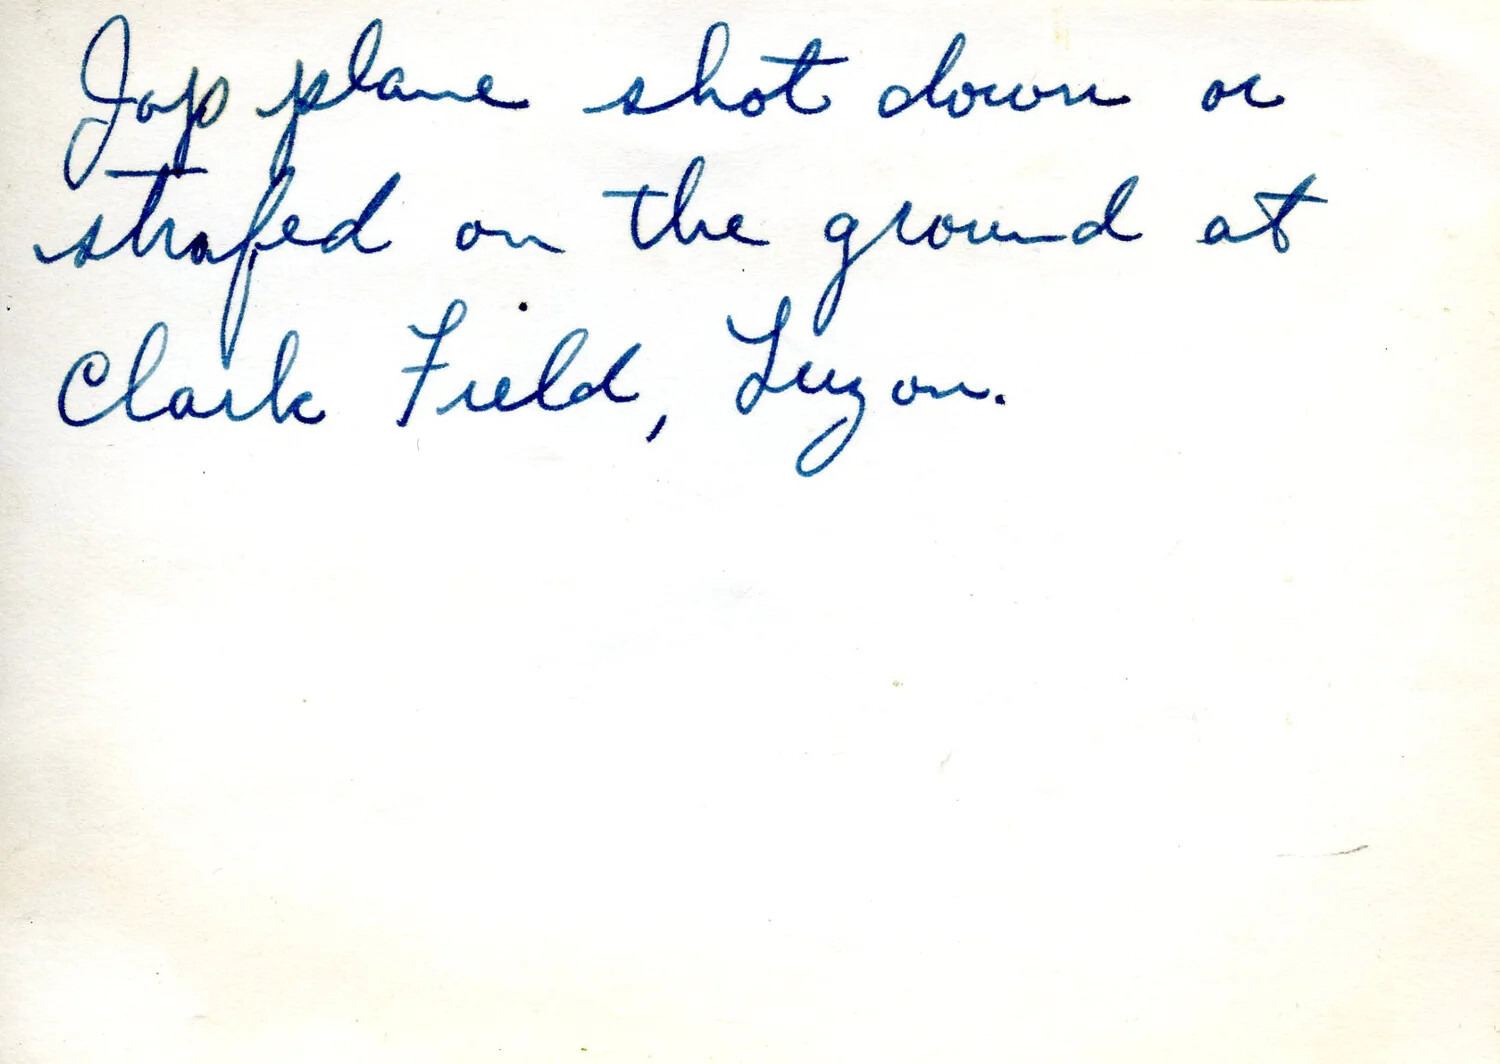 Jap plane shot down or
strafed on the ground at
Clark Field, Luzon.